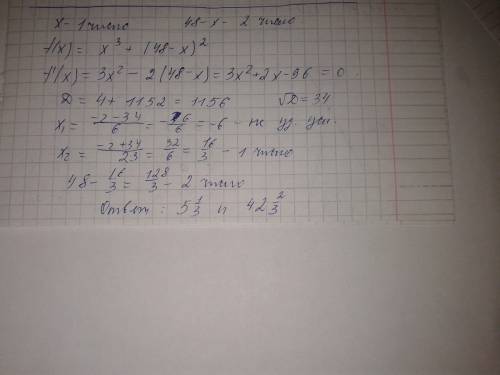 x - 1 число 48-x - 2 число
f(x) = x³ + (48-x)²
f'(x) = 3x² - 2(48-x) = 3x² + 2x - 96 = 0
D = 4 + 1152 = 1156 √D = 34
x₁ = (-2-34)/6 = -36/6 = -6 - не уд. усл.
x₂ = (-2+34)/23 = 32/6 = 16/3 - 1 число
48 - 16/3 = 128/3 - 2 число
Ответ: 5 1/3 и 42 2/3